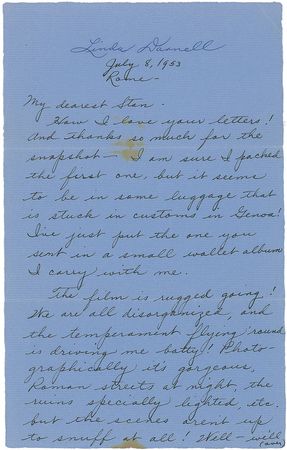 Linda Darnell
July 8, 1953
Rome -
My dearest Stan -
How I love your letters!
And thanks so much for the
snapshot - I am sure I packed
the first one, but it seems
to be in some luggage that
is stuck in customs in Genoa!
I've just put the one you
sent in a small wallet album
I carry with me.
The film is rugged going!
We are all disorganized, and
the temperament flying 'round
is driving me batty! Photo-
graphically it's gorgeous,
Roman streets at night, the
ruins specially lighted, etc.
but the scenes arent up
to snuff at all! Well - will
(over)